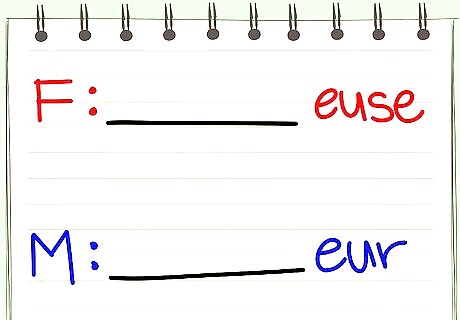 F: ________ euse
M: ________ eur